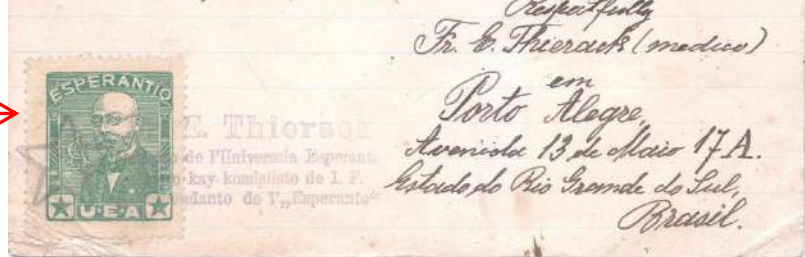 Respectfully
Fr. E. Thierack (medico)
em
Porto Alegre,
Avenida 13 de Maio 17 A.
Estado do Rio Grande do Sul,
Brasil.
ESPERANTIO
U·E·A
E. Thierack
de l'Universala Esperanto
kay komisiisto de I. F.
de l'„Esperanto“